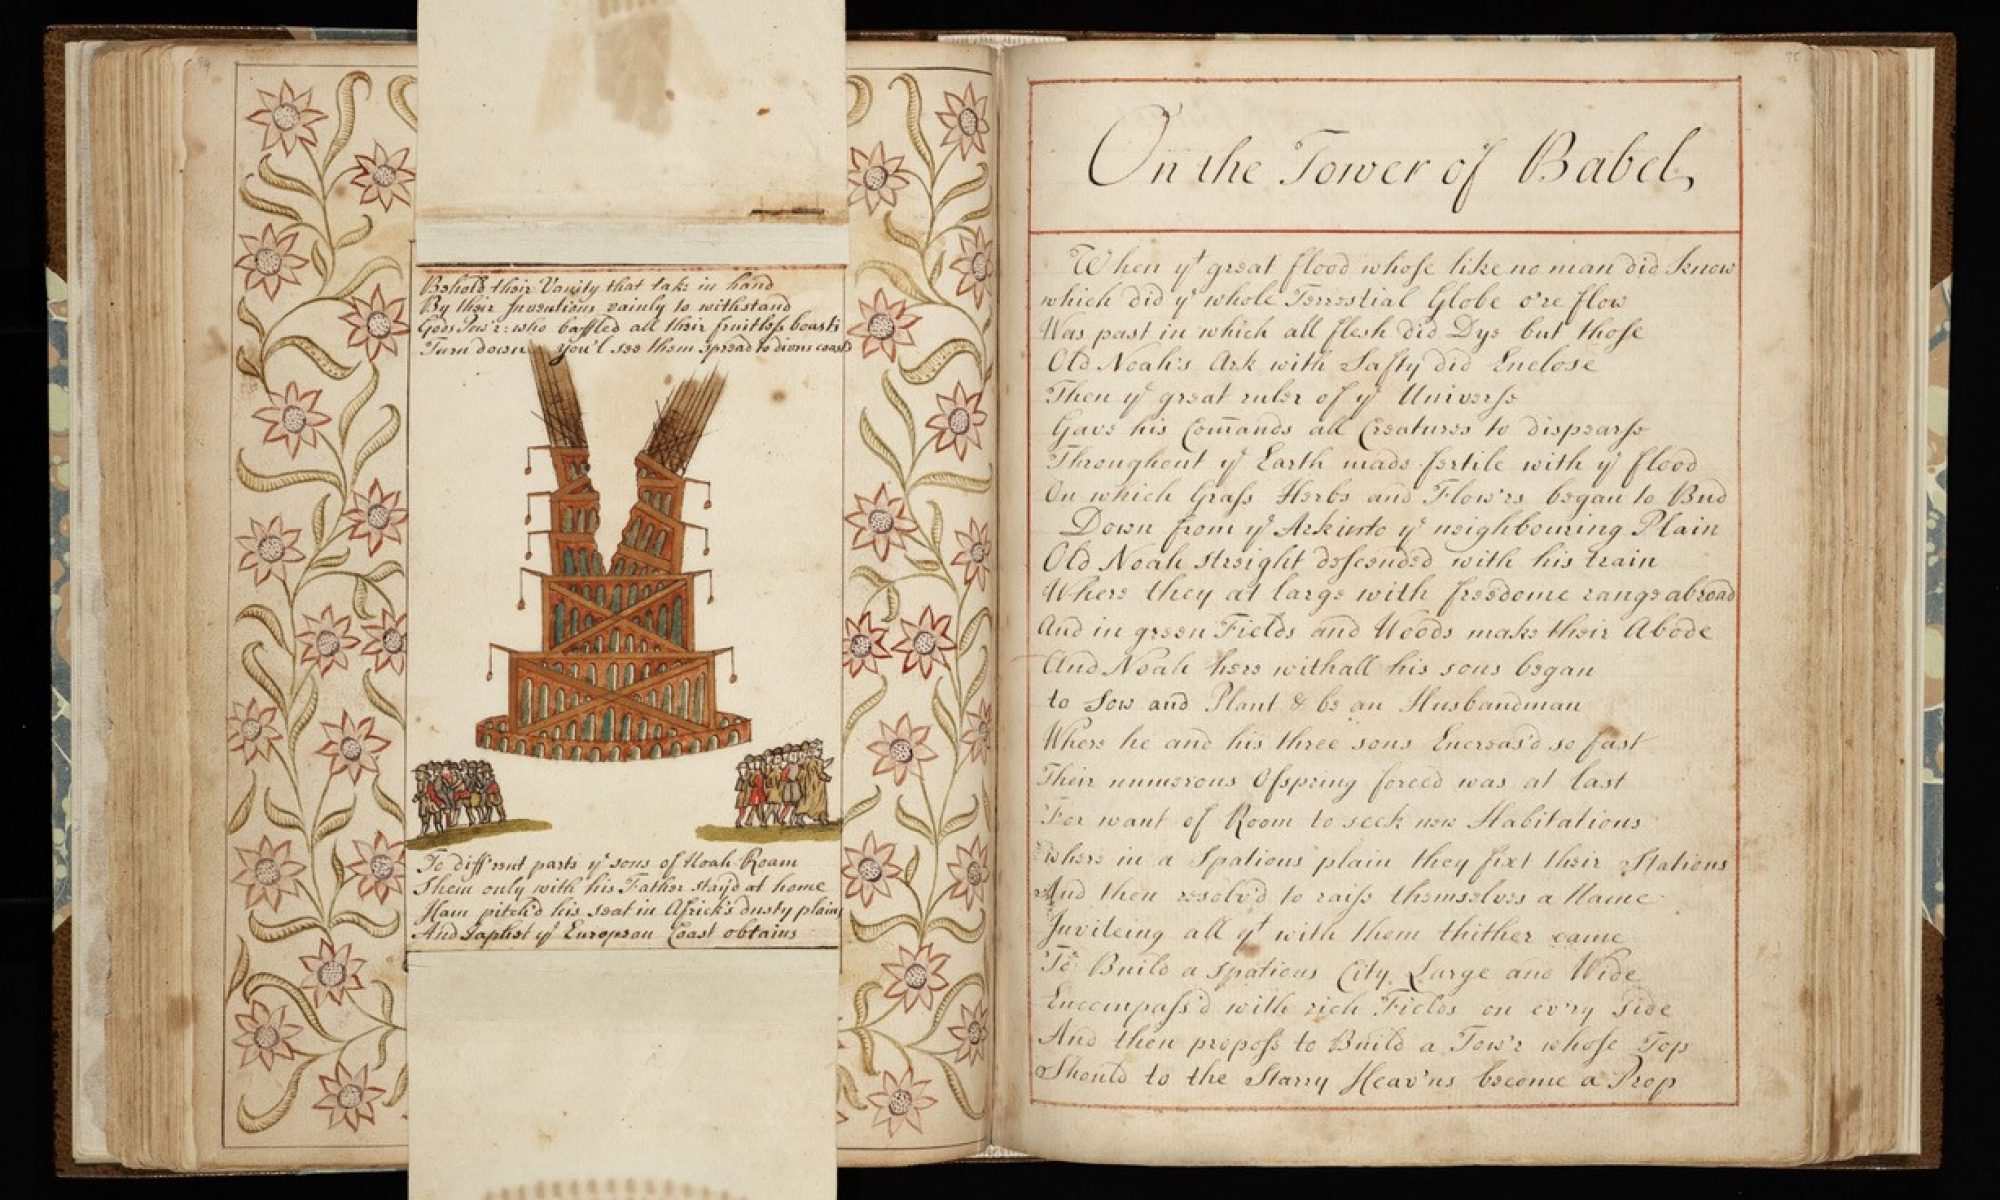 Behold their Vanity that take in hand
By their Inventions vainly to withstand
Gods Pow'r: who baffled all their fruitless boasts
Turn down you'l see them spread to divers coasts
To diff'rent parts yᵉ sons of Noah Roam
Shem only with his Father stay'd at home
Ham pitch'd his seat in Africk's dusty plains
And Japhet yᵉ European Coast obtains
On the Tower of Babel,
When yᵗ great flood whose like no man did know
which did yᵉ whole Terrestial Globe o're flow
Was past in which all flesh did Dye but those
Old Noah's Ark with Safty did Enclose
Then yᵉ great ruler of yᵉ Universe
Gave his Com̄ands all Creatures to dispearse
Throughout yᵉ Earth made fertile with yᵉ flood
On which Grass Herbs and Flow'rs began to Bud
Down from yᵉ Ark into yᵉ neighbouring Plain
Old Noah streight descended with his train
Where they at large with freedome range abroad
And in green Fields and Woods make their Abode
And Noah here withall his sons began
to Sow and Plant & be an Husbandman
Where he and his three sons Encreas'd so fast
Their numerous Ofspring forced was at last
For want of Room to seek new Habitations
where in a Spatious plain they fixt their Stations
And then resolv'd to raise themselves a Name
Inviteing all yᵗ with them thither came
To Build a spatious City Large and Wide
Encompass'd with rich Fields on ev'ry side
And then propose to Build a Tow'r whose Top
Should to the Starry Heav'ns become a Prop